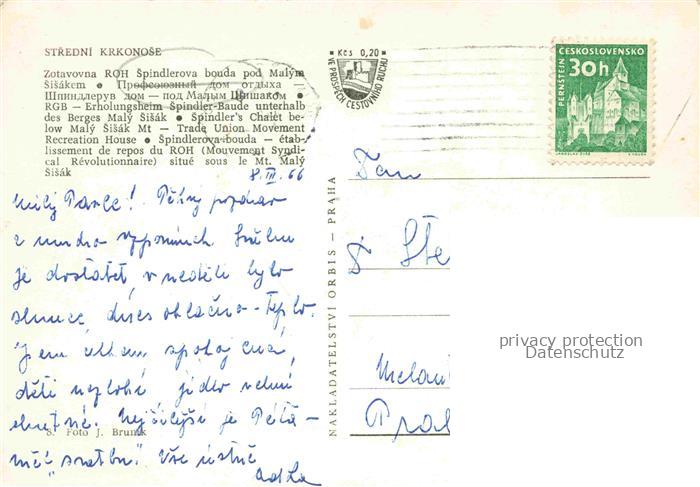 STŘEDNÍ KRKONOŠE
Zotavovna ROH Špindlerova bouda pod Malým
Šišákem • Профсоюзный дом отдыха —
Шпиндлерув дом — под Малым Шишаком •
RGB — Erholungsheim Špindler-Baude unterhalb
des Berges Malý Šišák • Špindler's Chalet be-
low Malý Šišák Mt — Trade Union Movement
Recreation House • Špindlerova bouda — étab-
lissement de repos du ROH (Mouvement Syndi-
cal Révolutionnaire) situé sous le Mt. Malý
Šišák
8. III. 66
Milý Pavle! Pěkný pozdrav
z mnoha vzpomínek. Sněhu
je dostatek, v neděli bylo
slunce, dnes oblačno - teplo.
Jsem velkem spokojená,
děti nezlobí jídlo velmi
chutné. Nejčilejší je
"svatbu". Vše ústně
S. Foto J. Brunk
NAKLADATELSTVÍ ORBIS — PRAHA
Kčs 0,20
VE PROSPĚCH CESTOVNÍHO RUCHU
ČESKOSLOVENSKO
30h
PERNŠTEJN
Pan
Ste
Prah
privacy protection
Datenschutz